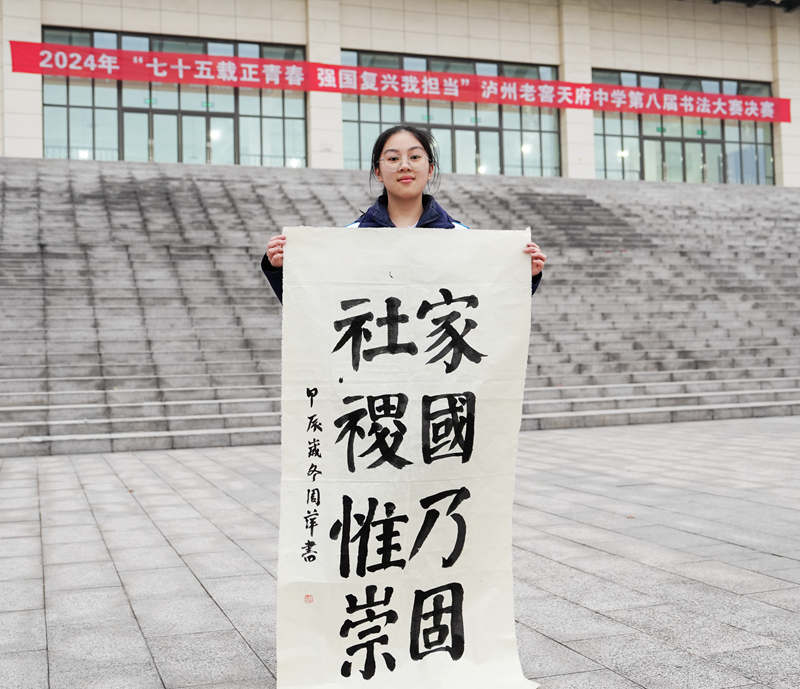 2024年“七十五载正青春 强国复兴我担当”泸州老窖天府中学第八届书法大赛决赛
家國乃固
社稷惟崇
甲辰歲冬周萍書